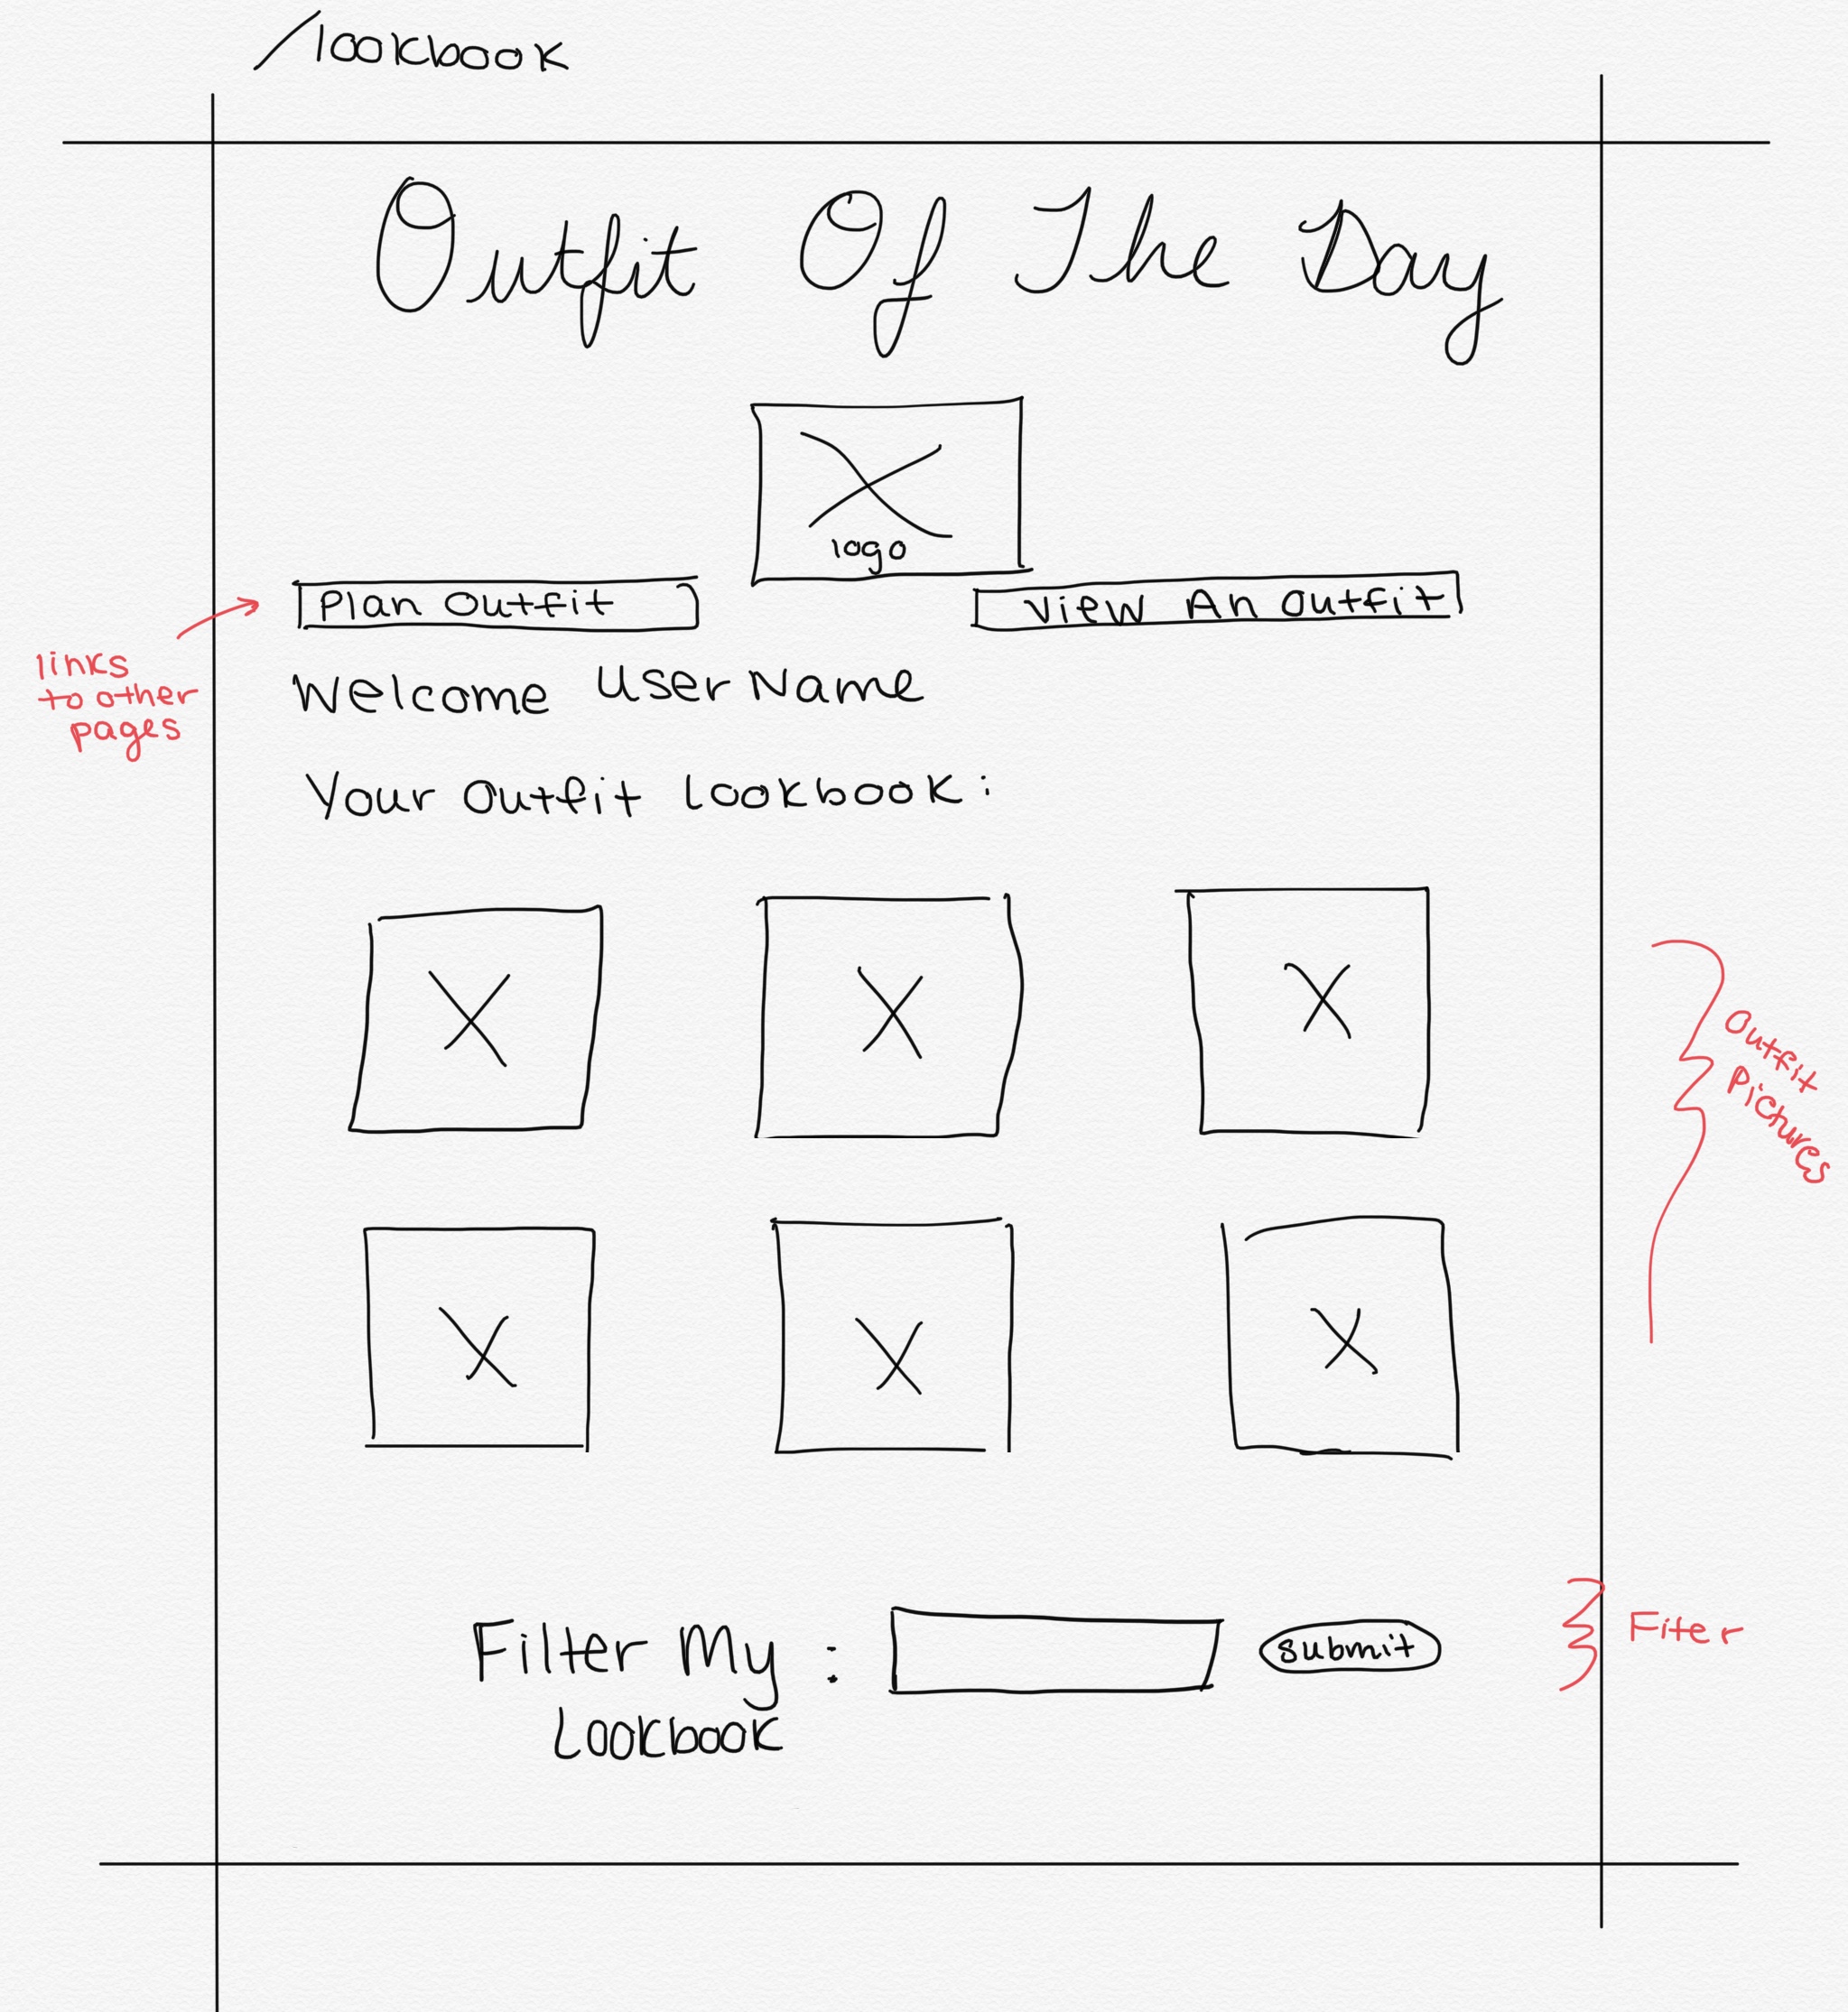 /lookbook
Outfit Of The Day
logo
Plan Outfit
View An Outfit
links
to other
pages
Welcome UserName
Your Outfit Lookbook:
Outfit
Pictures
Filter My :
Lookbook
submit
Fiter